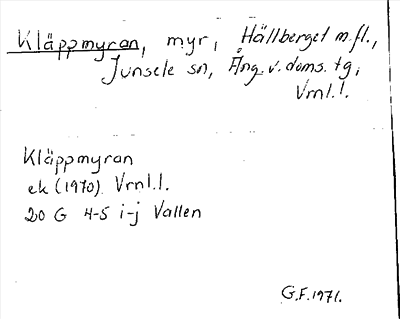 Kläppmyran, myr, Hällberget m.fl.,
Junsele sn, Ång. v. doms. tg,
Vrnl.l.
Kläppmyran
ek (1970) Vrnl.l.
20 G 4-5 i-j Vallen
G.F. 1971.